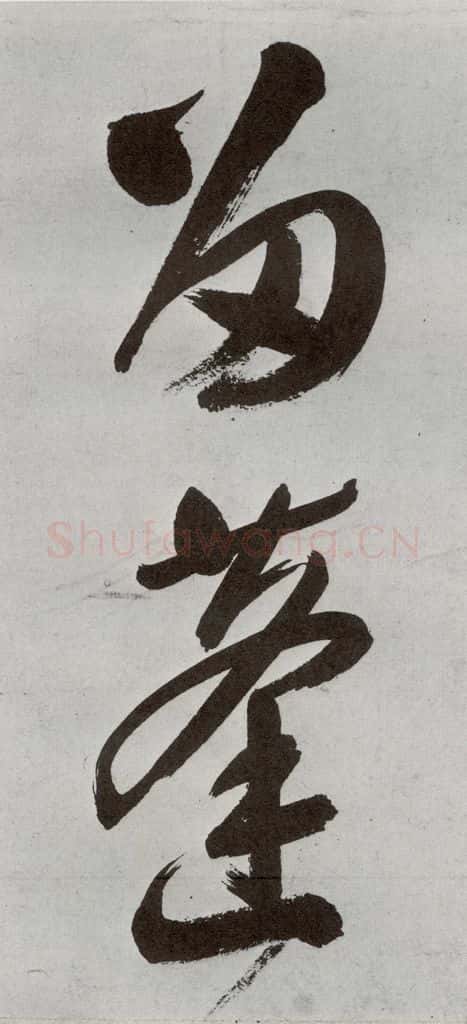 留
蓬
Shufawang.CN